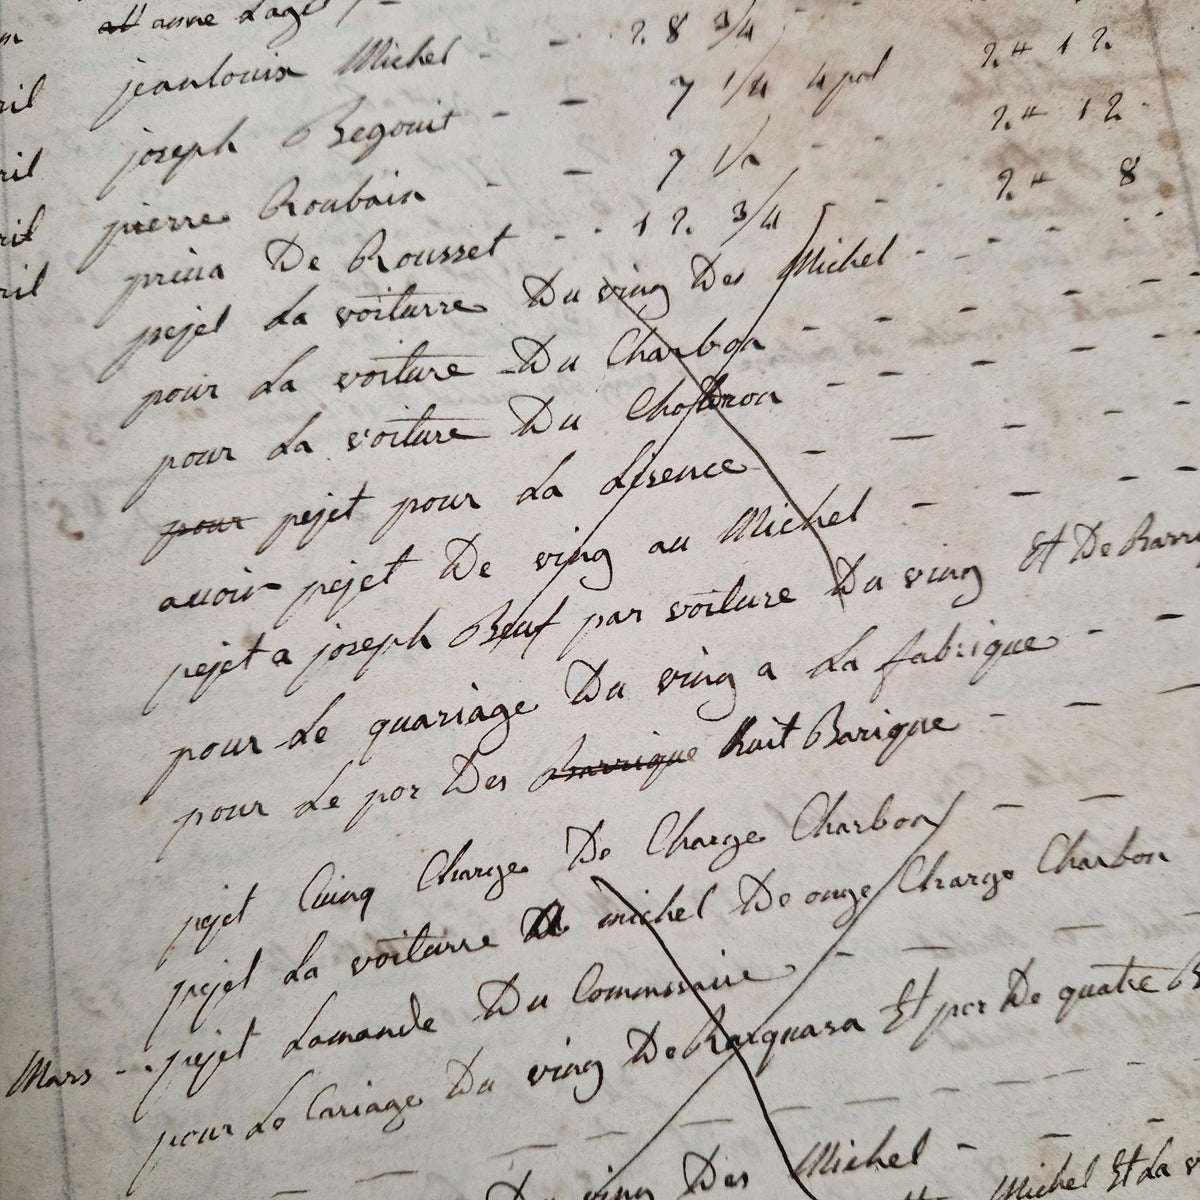 jeanlouis Michel - - 2 8 3/4
ril joseph Begouit - - 7 1/4 4 pol 2 # 1 2
ril pierre Roubain - - 7 1/2 - - 2 # 1 2
ril De Rousset - - 1 2 3/4 - - 2 # 8
pejet La voiturre Du ving Des Michel
pour La voiture Du Charbon
pour La voiture Du
pour pejet pour La Lisence
avoir pejet De ving au Michel
pejet a joseph Beuf par voiture Du ving Et De Barri
pour Le quariage Du ving a La fabrique
pour Le por Des Barrique huit Barique
pejet Cuinq Charge De Charge Charbon
pejet La voiturre michel De onze Charge Charbon
Mars - - pejet Lamande Du Commissaire
pour Le Cariage Du ving De Et por De quatre B
Du ving Des Michel
Michel Et La v